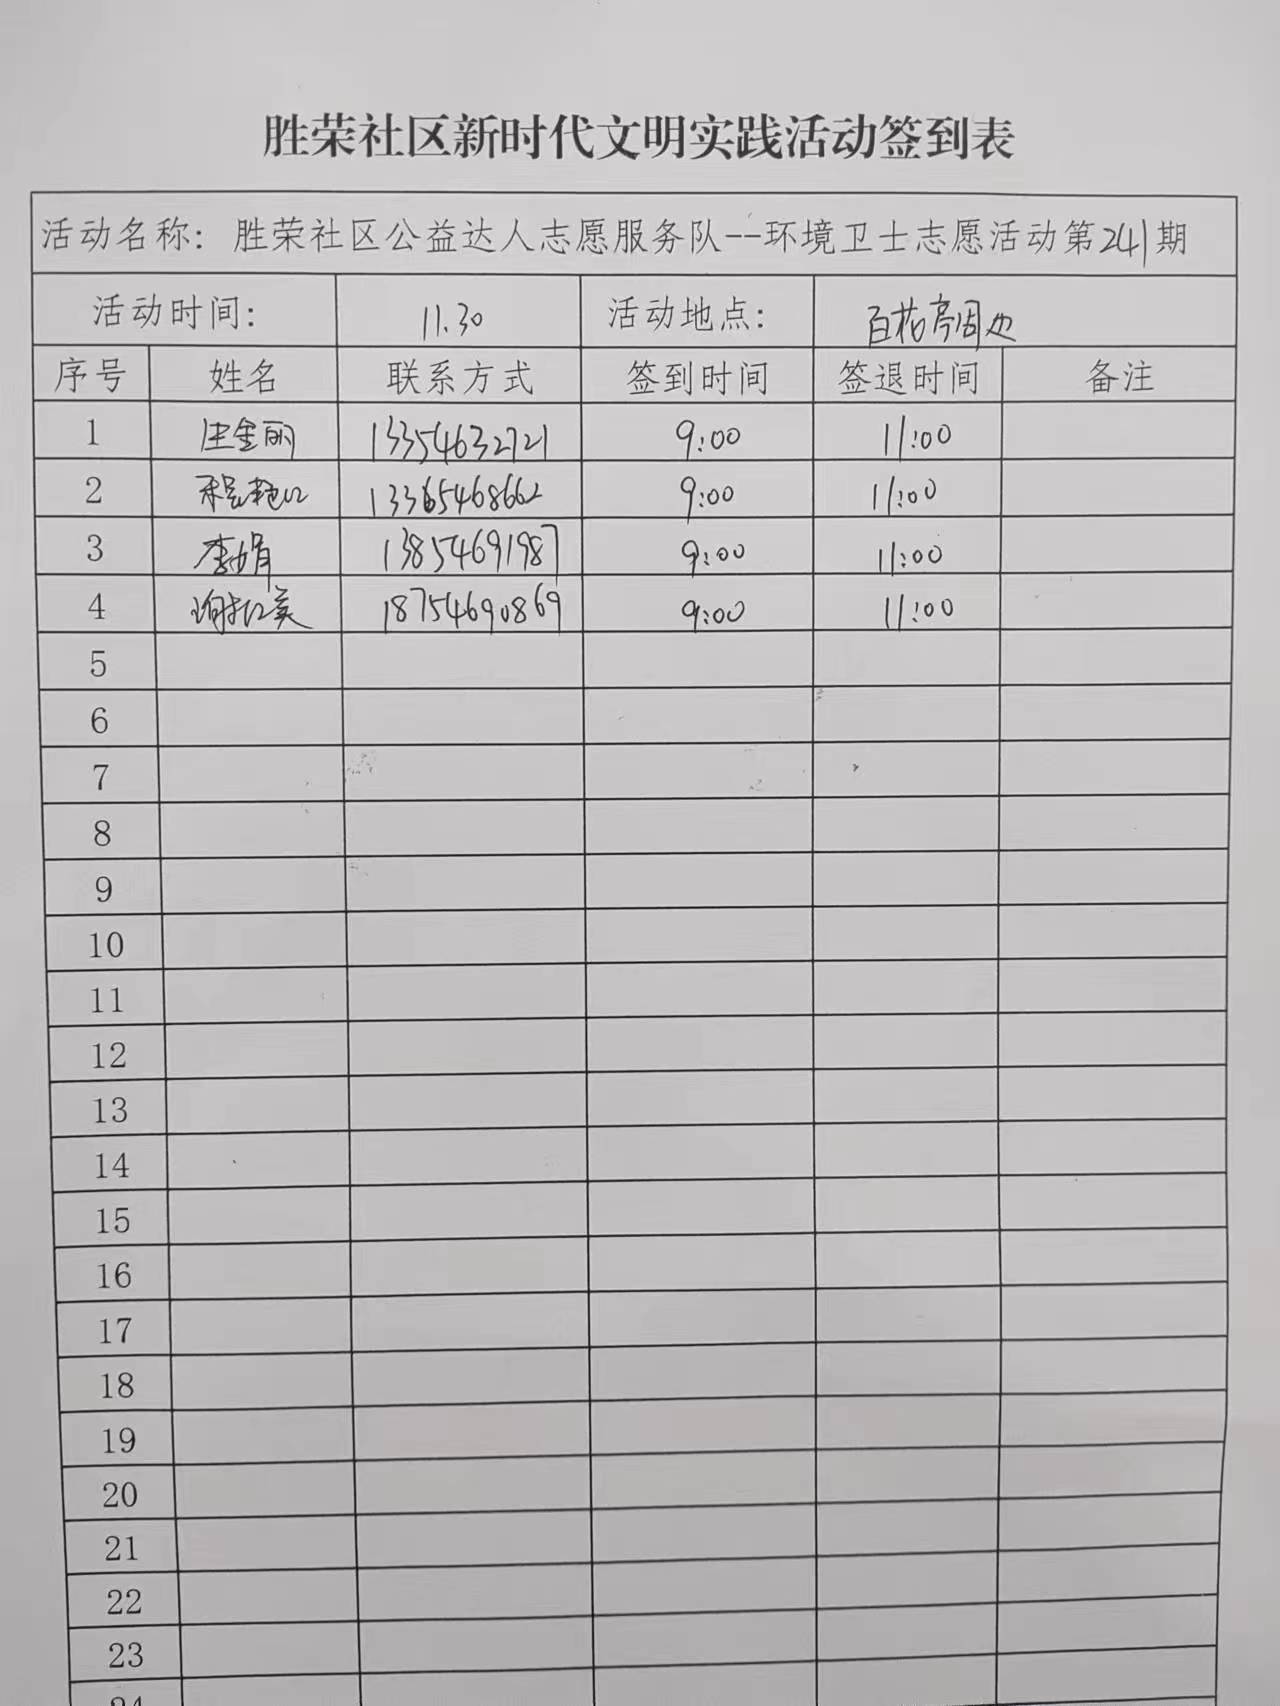 胜荣社区新时代文明实践活动签到表
活动名称：胜荣社区公益达人志愿服务队--环境卫士志愿活动第241期
活动时间： 11.30 活动地点： 百花亭周边
序号 姓名 联系方式 签到时间 签退时间 备注
1 金丽 13354632721 9:00 11:00
2 程艳 13365468662 9:00 11:00
3 李娟 13854691987 9:00 11:00
4 谢红英 18754690869 9:00 11:00
5
6
7
8
9
10
11
12
13
14
15
16
17
18
19
20
21
22
23
24